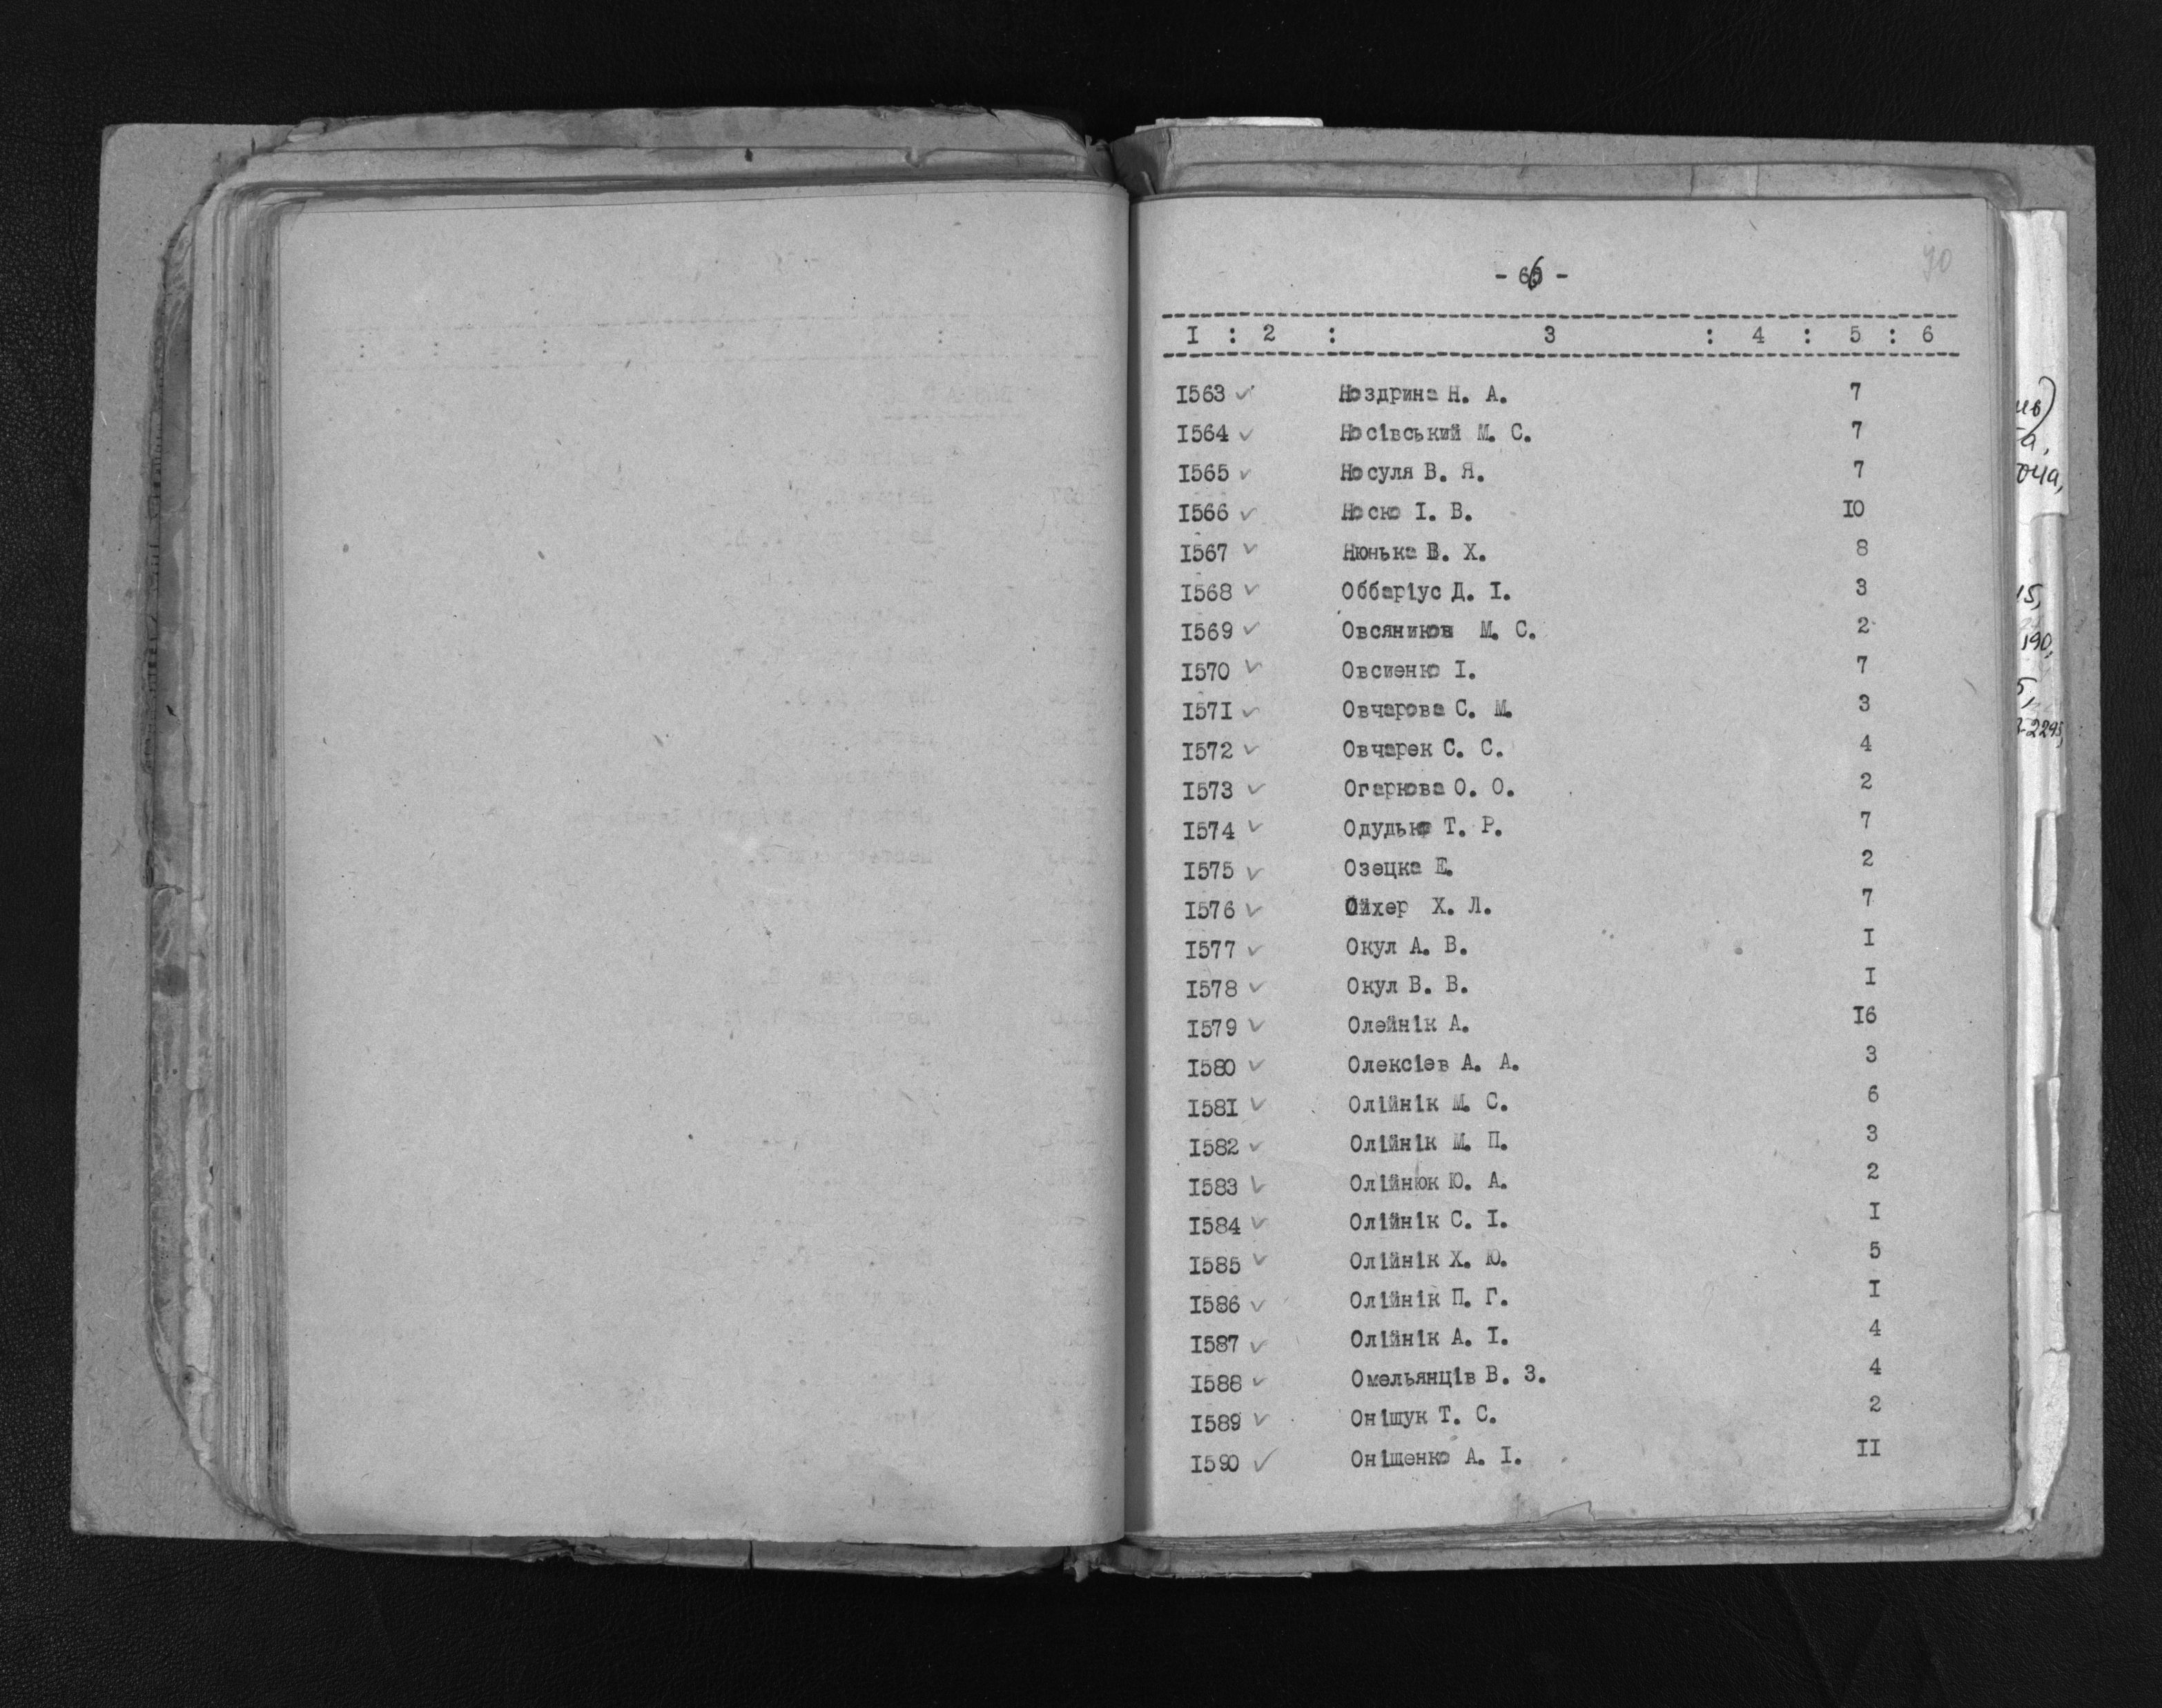 - 66 -
70
I : 2 : 3 : 4 : 5 : 6
I563 ✓ Ноздрина Н. А. 7
I564 ✓ Носівський М. С. 7
I565 ✓ Носуля В. Я. 7
I566 ✓ Носко І. В. I0
I567 ✓ Нюнька В. Х. 8
I568 ✓ Оббаріус Д. І. 3
I569 ✓ Овсяников М. С. 2
I570 ✓ Овсиенко І. 7
I57I ✓ Овчарова С. М. 3
I572 ✓ Овчарек С. С. 4
I573 ✓ Огаркова О. О. 2
I574 ✓ Одудько Т. Р. 7
I575 ✓ Озецка Е. 2
I576 ✓ Ойхер Х. Л. 7
I577 ✓ Окул А. В. I
I578 ✓ Окул В. В. I
I579 ✓ Олейнік А. I6
I580 ✓ Олексіев А. А. 3
I58I ✓ Олійнік М. С. 6
I582 ✓ Олійнік М. П. 3
I583 ✓ Олійнюк Ю. А. 2
I584 ✓ Олійнік С. І. I
I585 ✓ Олійнік Х. Ю. 5
I586 ✓ Олійнік П. Г. I
I587 ✓ Олійнік А. І. 4
I588 ✓ Омельянців В. З. 4
I589 ✓ Оніщук Т. С. 2
I590 ✓ Оніщенко А. І. II